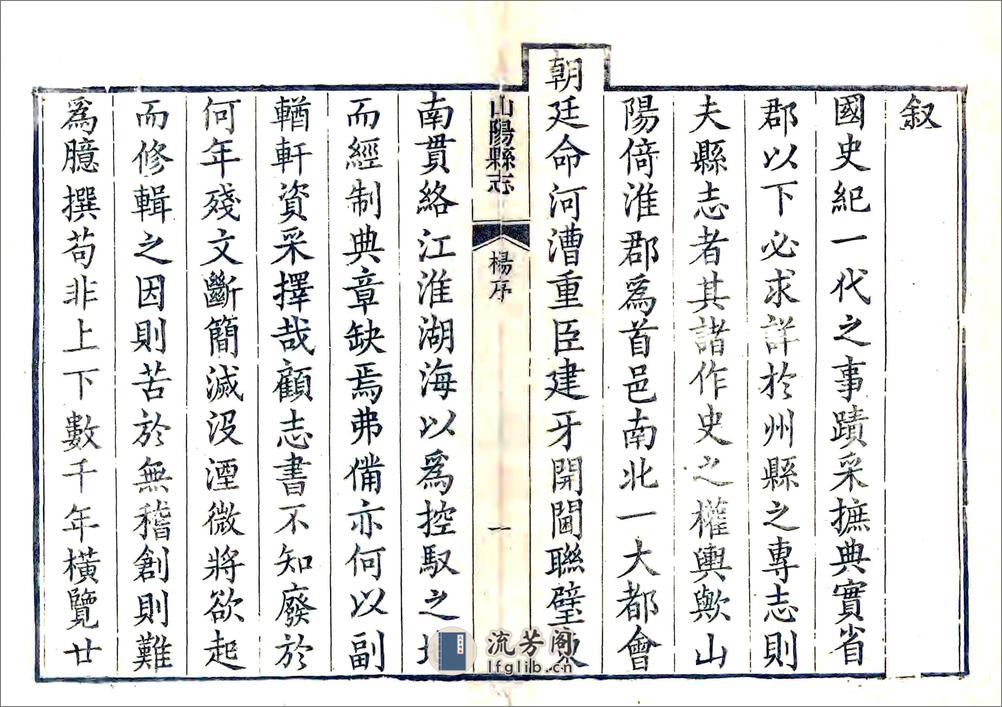 叙
國史紀一代之事蹟采摭典實省
郡以下必求詳於州縣之專志則
夫縣志者其諸作史之權輿歟山
陽倚淮郡爲首邑南北一大都會
朝廷命河漕重臣建牙開閫聯璧
山陽縣志
楊序
一
南貫絡江淮湖海以爲控馭之
而經制典章缺焉弗備亦何以副
輶軒資采擇哉顧志書不知廢於
何年殘文斷簡滅沒湮微將欲起
而修輯之因則苦於無稽創則難
爲臆撰苟非上下數千年橫覽廿
流芳阁
lfglib.cn